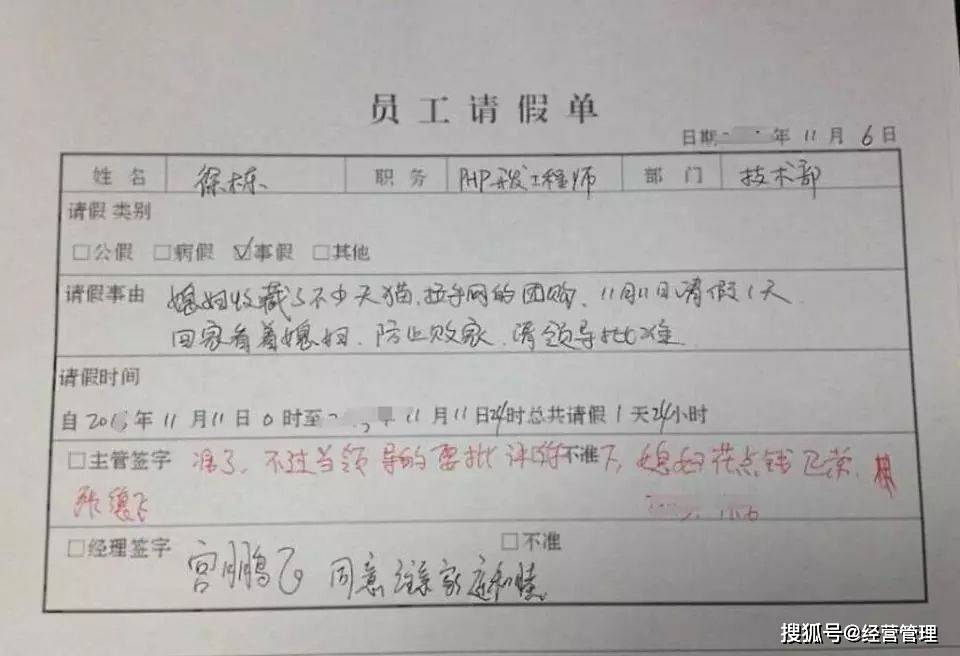 员工请假单
日期 年 11 月 6 日
姓名 徐栋 职务 PHP开发工程师 部门 技术部
请假类别
□公假 □病假 ☑事假 □其他
请假事由 媳妇收藏了不少天猫、拉手网的团购、11月11日请假1天
回家看着媳妇、防止败家、请领导批准
请假时间
自 201 年 11 月 11 日 0 时至 年 11 月 11 日 24 时总共请假 1 天 24 小时
□主管签字 准了、不过当领导的要批评 不准 下, 媳妇花点钱
张
□经理签字 □不准
宫鹏飞 同意 家庭和睦。
搜狐号@经营管理